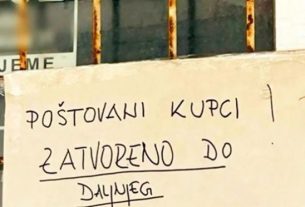 JEME
POŠTOVANI KUPCI
ZATVORENO DO
DALJNJEG